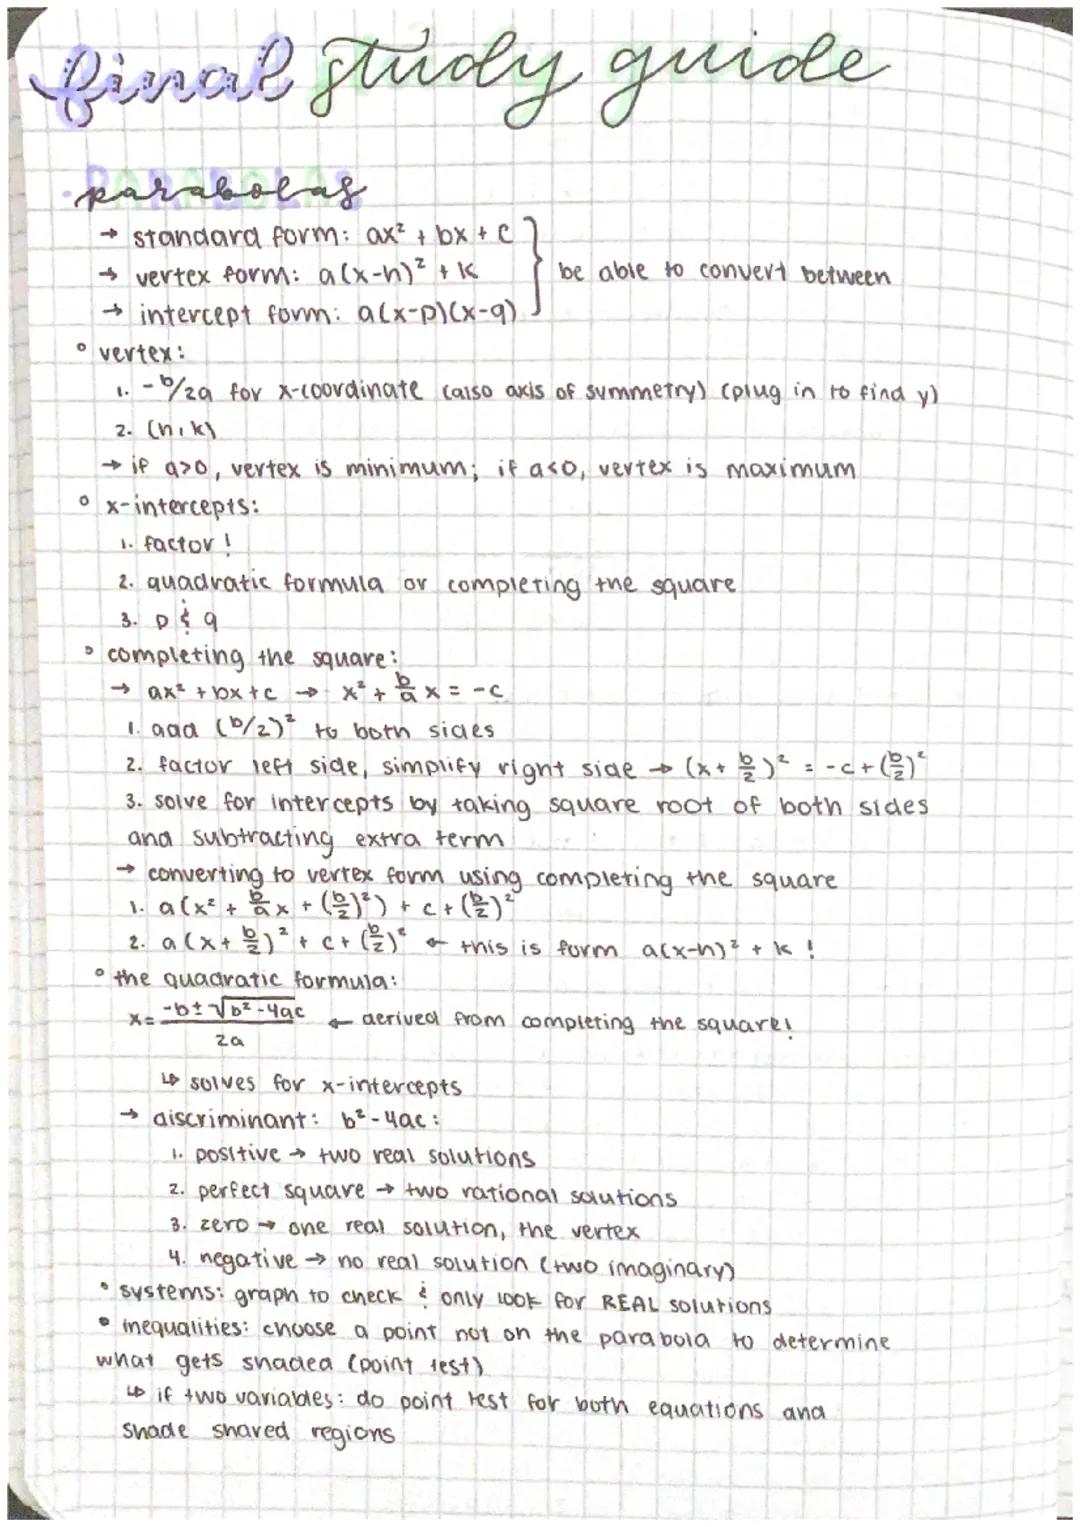 final study guide
• parabolas
→ standard form: ax² + bx + c
→ vertex form: a(x-h)² + k } be able to convert between
→ intercept form: a(x-p)(x-q)
° vertex:
1. -b/2a for x-coordinate (also axis of symmetry) (plug in to find y)
2. (h,k)
→ if a>0, vertex is minimum; if a<0, vertex is maximum
° x-intercepts:
1. factor!
2. quadratic formula or completing the square
3. p & q
° completing the square:
→ ax² + bx + c → x² + b/a x = -c
1. add (b/2)² to both sides
2. factor left side, simplify right side → (x + b/2)² = -c + (b/2)²
3. solve for intercepts by taking square root of both sides
and subtracting extra term
→ converting to vertex form using completing the square
1. a(x² + b/a x + (b/2)²) + c + (b/2)²
2. a(x + b/2)² + c + (b/2)² ← this is form a(x-h)² + k !
° the quadratic formula:
x = -b ± √b²-4ac / 2a ← derived from completing the square!
↳ solves for x-intercepts
→ discriminant: b²-4ac:
1. positive → two real solutions
2. perfect square → two rational solutions
3. zero → one real solution, the vertex
4. negative → no real solution (two imaginary)
• systems: graph to check & only look for REAL solutions
• inequalities: choose a point not on the parabola to determine
what gets shaded (point test)
↳ if two variables: do point test for both equations and
shade shared regions